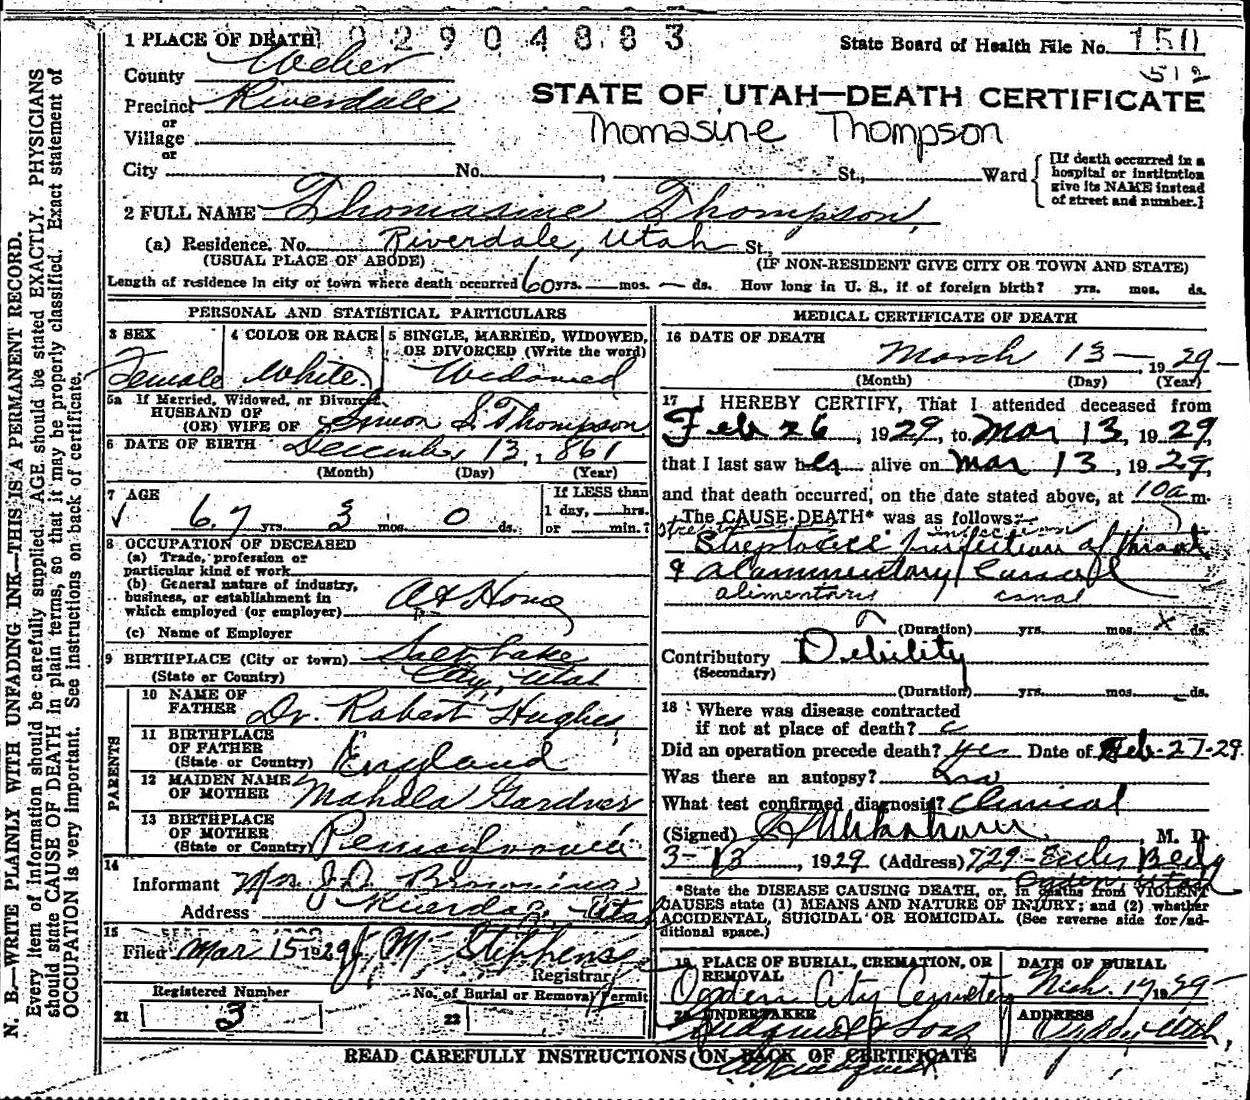 1 PLACE OF DEATH 02904883 State Board of Health File No. 150
512
County Weber
Precinct Riverdale
or
Village
or
City No. , St., Ward
STATE OF UTAH—DEATH CERTIFICATE
Thomasine Thompson
[If death occurred in a
hospital or institution
give its NAME instead
of street and number.]
2 FULL NAME Thomasine Thompson,
(a) Residence. No. Riverdale, Utah St.,
(USUAL PLACE OF ABODE) (IF NON-RESIDENT GIVE CITY OR TOWN AND STATE)
Length of residence in city or town where death occurred 60 yrs. — mos. — ds. How long in U. S., if of foreign birth? yrs. mos. ds.
PERSONAL AND STATISTICAL PARTICULARS
3 SEX 4 COLOR OR RACE 5 SINGLE, MARRIED, WIDOWED,
OR DIVORCED (Write the word)
Female White Widowed
5a If Married, Widowed, or Divorced
HUSBAND OF
(OR) WIFE OF Simon S. Thompson
6 DATE OF BIRTH December 13, 1861
(Month) (Day) (Year)
7 AGE If LESS than
1 day, hrs.
67 yrs. 3 mos. 0 ds. or min.?
8 OCCUPATION OF DECEASED
(a) Trade, profession or
particular kind of work
(b) General nature of industry,
business, or establishment in
which employed (or employer) At Home
(c) Name of Employer
9 BIRTHPLACE (City or town) Salt Lake
(State or Country) City, Utah
PARENTS
10 NAME OF
FATHER Dr. Robert Hughes,
11 BIRTHPLACE
OF FATHER
(State or Country) England
12 MAIDEN NAME
OF MOTHER Mahala Gardner
13 BIRTHPLACE
OF MOTHER
(State or Country) Pennsylvania
14
Informant Mrs. J. D. Browning
Address Riverdale, Utah
15
Filed Mar 15 1929 J. M. Stephens
Registrar
Registered Number No. of Burial or Removal Permit
21 3 22
MEDICAL CERTIFICATE OF DEATH
16 DATE OF DEATH
March 13 — 1929 —
(Month) (Day) (Year)
17 I HEREBY CERTIFY, That I attended deceased from
Feb 26, 1929, to Mar 13, 1929,
that I last saw her alive on Mar 13, 1929,
and that death occurred, on the date stated above, at 10 a m.
The CAUSE DEATH* was as follows:
infection
infection of throat
&
alimentary canal
(Duration) yrs. mos. ds.
Contributory Debility
(Secondary)
(Duration) yrs. mos. ds.
18 Where was disease contracted
if not at place of death?
Did an operation precede death? yes Date of Feb-27-29.
Was there an autopsy? no
What test confirmed diagnosis? Clinical
(Signed) M. D.
3-13, 1929 (Address) 729 - Eccles Bldg
Ogden Utah
*State the DISEASE CAUSING DEATH, or, in deaths from VIOLENT
CAUSES state (1) MEANS AND NATURE OF INJURY; and (2) whether
ACCIDENTAL, SUICIDAL OR HOMICIDAL. (See reverse side for ad-
ditional space.)
19 PLACE OF BURIAL, CREMATION, OR
REMOVAL DATE OF BURIAL
Ogden City Cemetery Mch. 17 1929
20 UNDERTAKER ADDRESS
& Sons Ogden, Utah,
READ CAREFULLY INSTRUCTIONS ON BACK OF CERTIFICATE
N. B.—WRITE PLAINLY WITH UNFADING INK—THIS IS A PERMANENT RECORD.
Every item of information should be carefully supplied. AGE should be stated EXACTLY. PHYSICIANS
should state CAUSE OF DEATH in plain terms, so that it may be properly classified. Exact statement of
OCCUPATION is very important. See instructions on back of certificate.